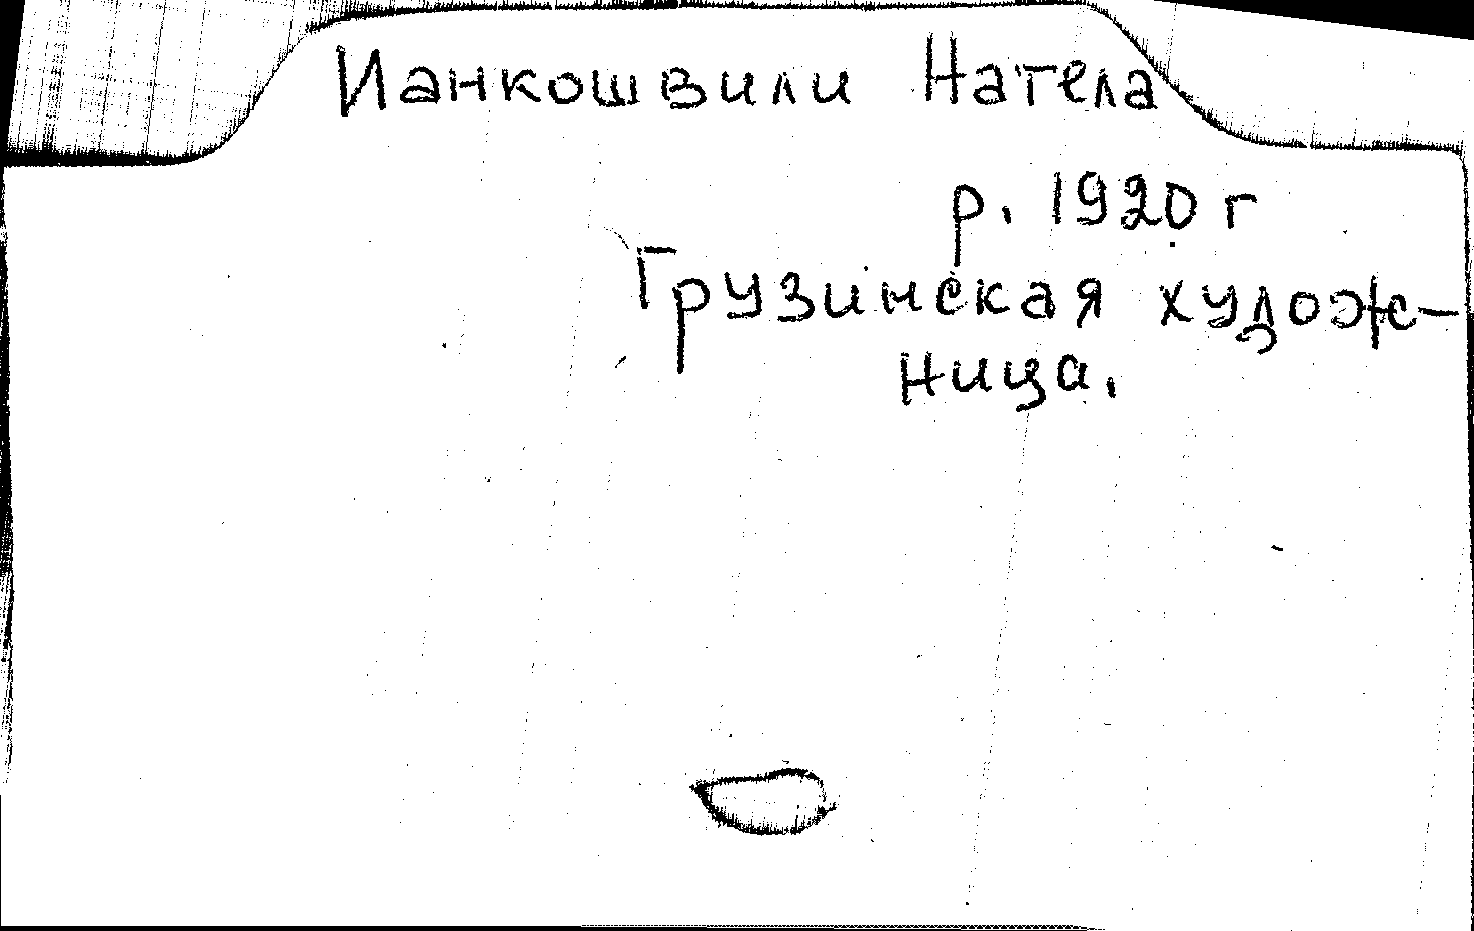 Ианкошвили Натела
р. 1920 г
Грузинская худож-
ница.